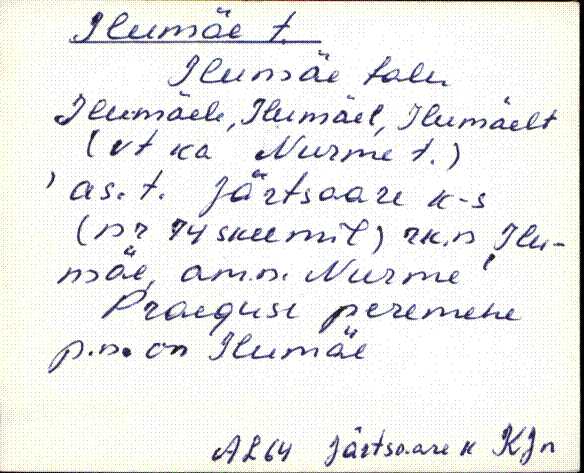 Ilumäe t.
Ilumäe talu
Ilumäele, Ilumäel, Ilumäelt
(vt ka Nurme t.)
as. t. Järtsaare k-s
(nr 74 skeemil) rk.n Ilu-
mäe, am.n. Nurme
Praeguse peremehe
p.n. on Ilumäe
AL64 Järtsaare k KJn